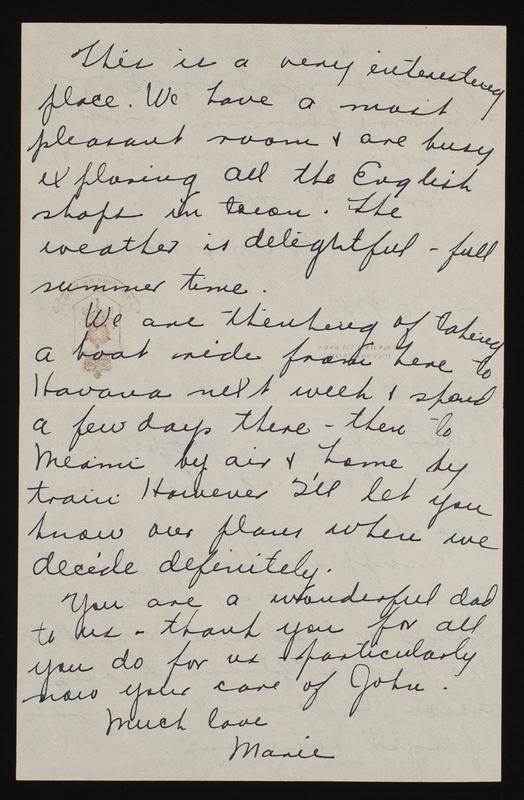 This is a very interesting
place. We have a most
pleasant room & are busy
exploring all the English
shops in town. The
weather is delightful - full
summer time.
We are thinking of taking
a boat ride from here to
Havana next week & spend
a few days there - then to
Miami by air & home by
train. However I'll let you
know our plans when we
decide definitely.
You are a wonderful dad
to us - thank you for all
you do for us & particularly
now your care of John.
Much love
Marie